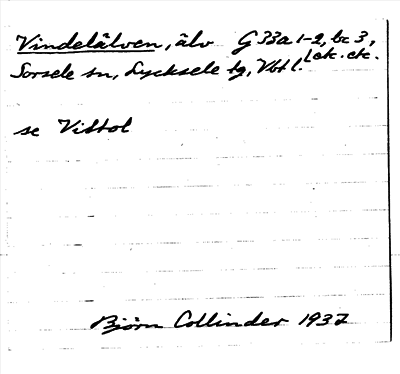 Vindelälven, älv G 33a 1-2, bc 3,
Sorsele sn, Lycksele tg, Vbtl. etc. etc.
se Vittol
Björn Collinder 1937